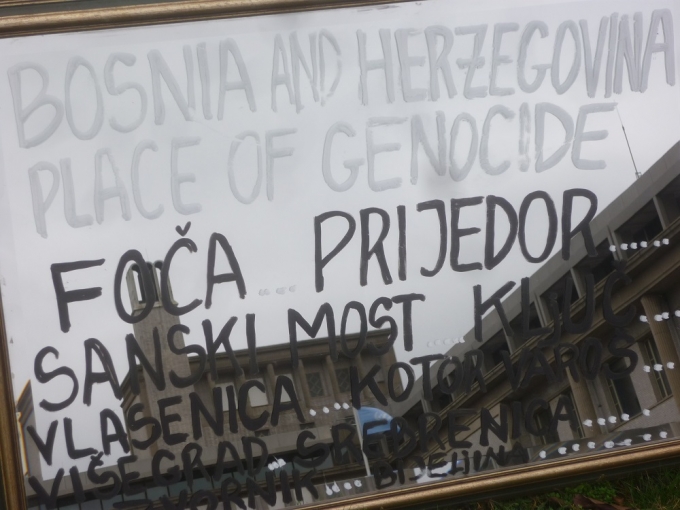 BOSNIA AND HERZEGOVINA
PLACE OF GENOCIDE
FOČA .... PRIJEDOR ......
SANSKI MOST .... KLJUČ ....
VLASENICA .... KOTOR VAROŠ ....
VIŠEGRAD .... SREBRENICA ........
ZVORNIK .... BIJELJINA ........